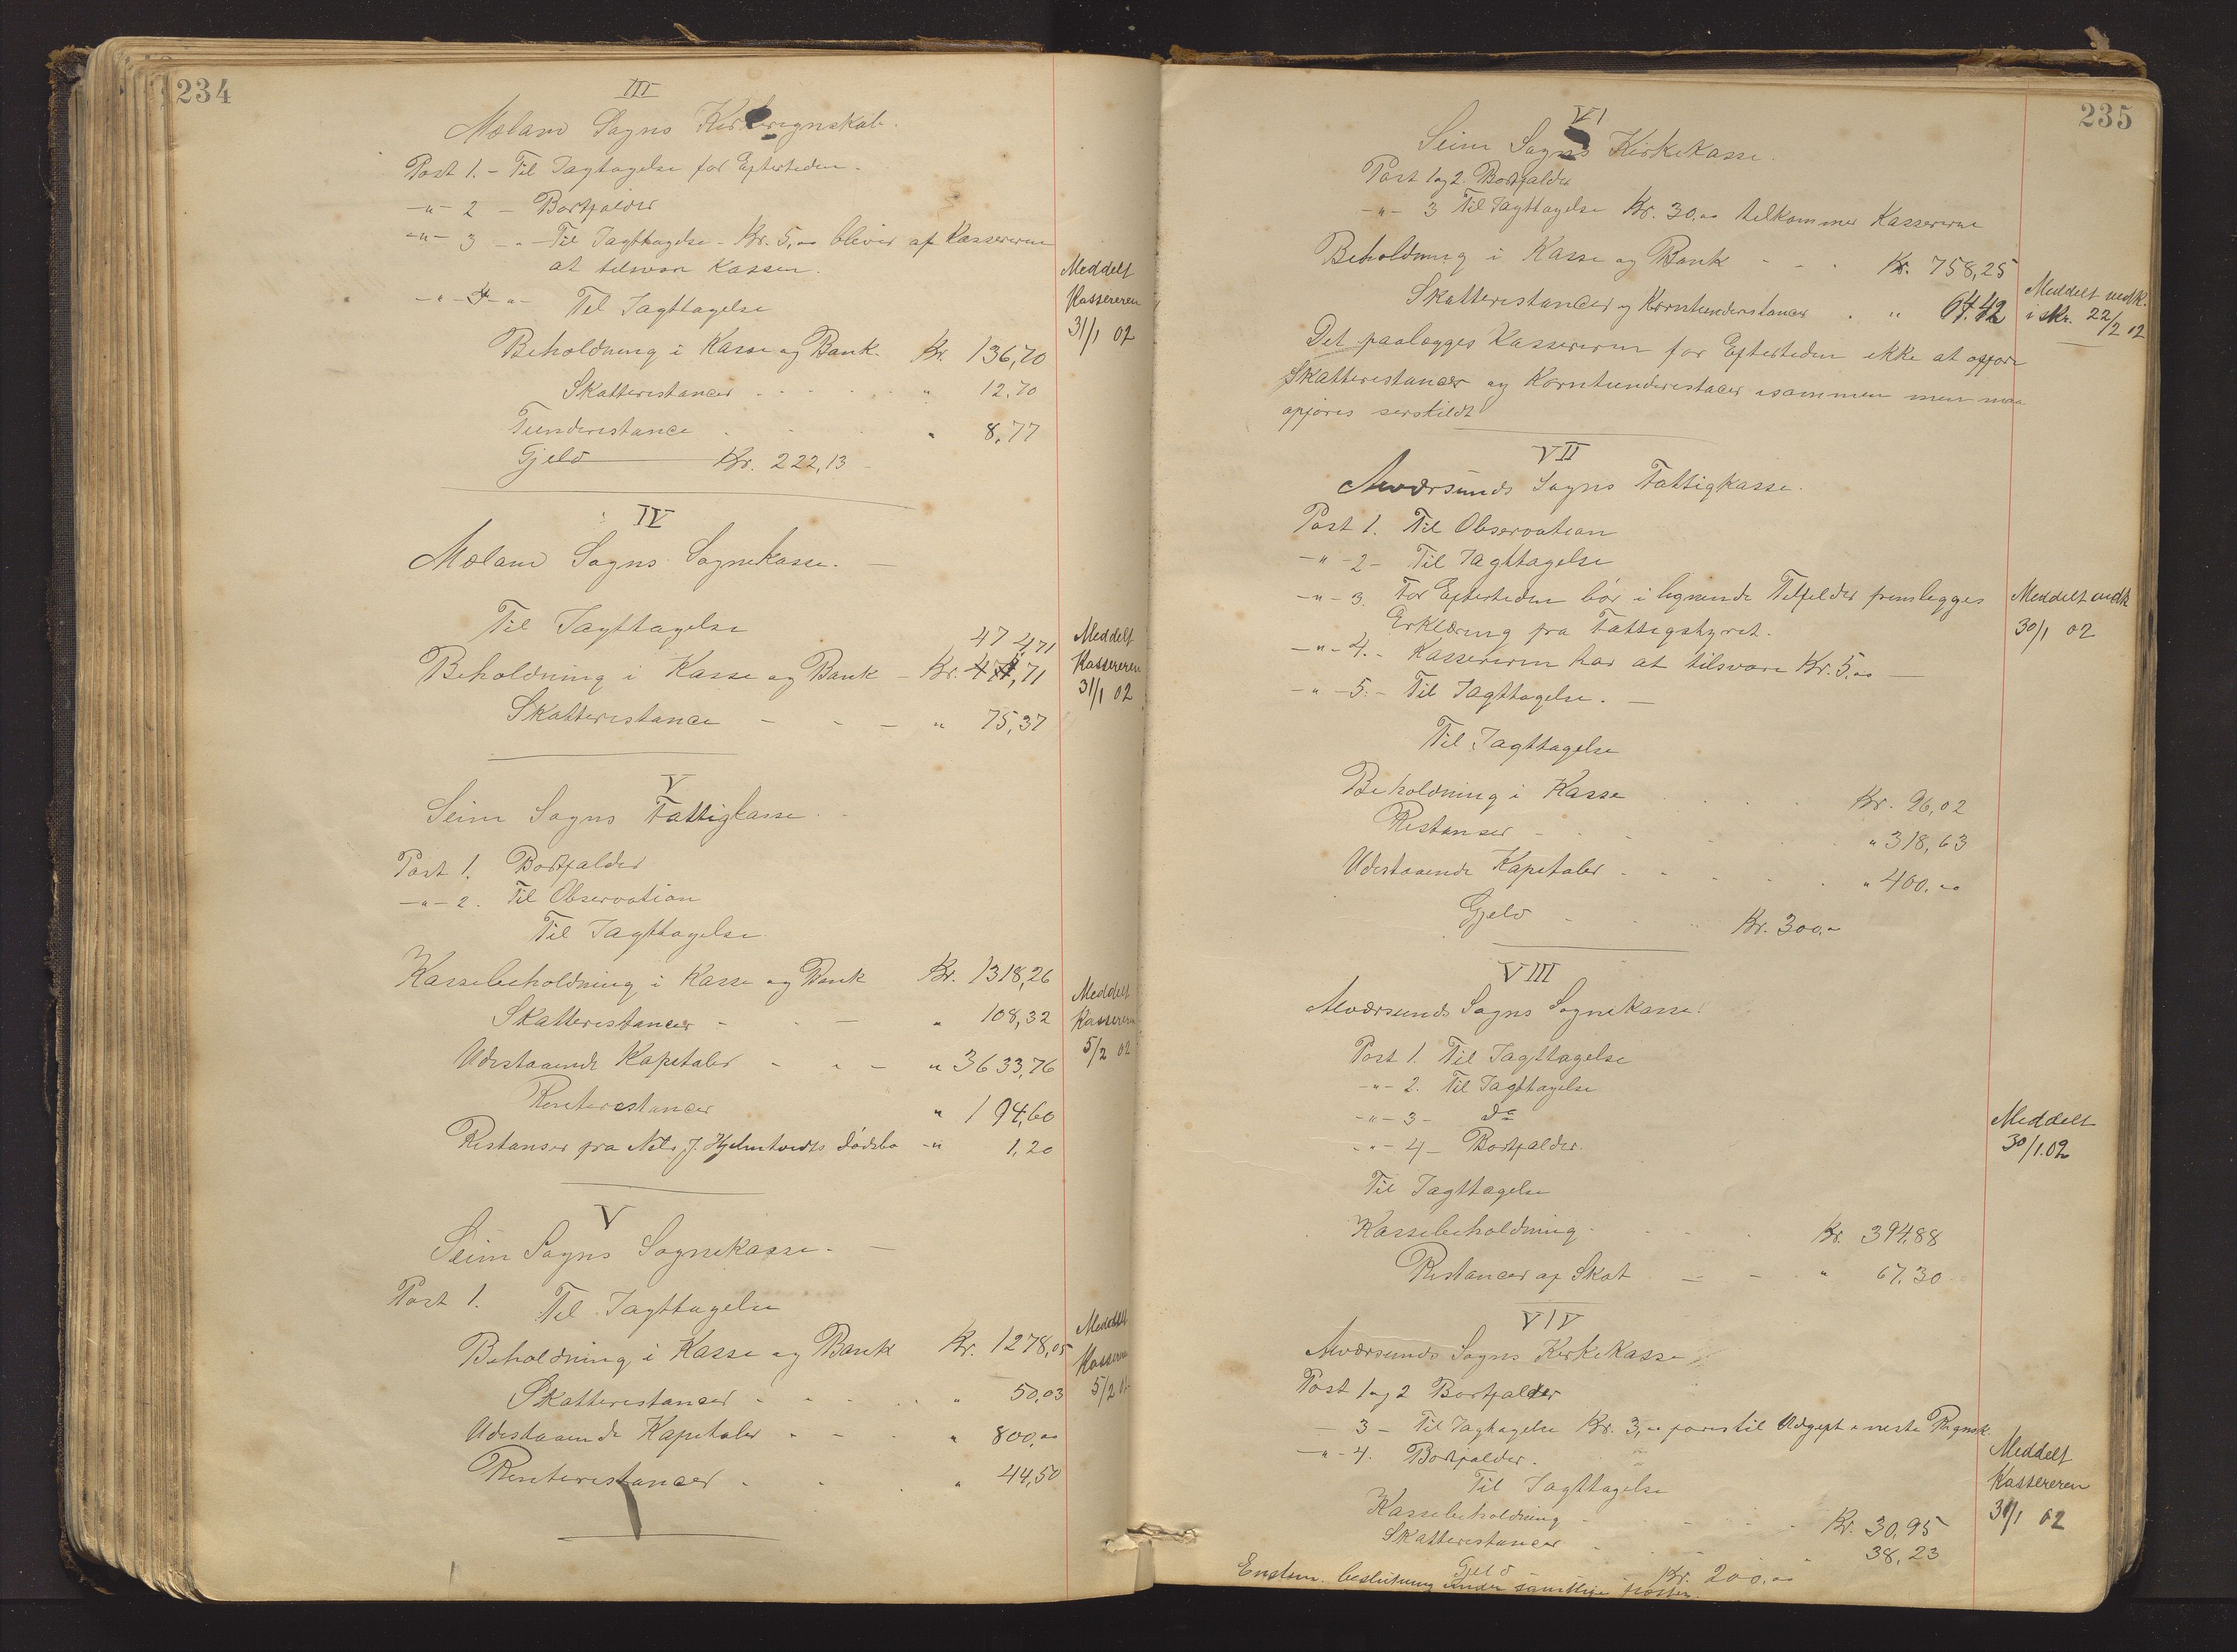 234
III
Mælann Sogns Kirkeregnskab.
Post 1. - Til Iagtagelse for Eftertiden.
-"- 2 - Bortfalder
-"- 3 - Til Iagttagelse - Kr. 5,00 bliver af Kassereren
at tilsvare Kassen.
-"- 4 -"- Til Iagttagelse
Beholdning i Kasse og Bank. Kr. 136,70
Skatterestancer " 12,70
Tienderestance " 8,77
Gjeld Kr. 222,13
Meddelt
Kassereren
31/1 02
IV
Mælann Sogns Sognekasse.
Til Iagttagelse
47471
Beholdning i Kasse og Bank - Kr. 474,71
Skatterestance - - - " 75,37
Meddelt
Kassereren
31/1 02
V
Seim Sogns Fattigkasse.
Post 1. Bortfalder
-"- 2. Til Observation
Til Iagttagelse
Kassebeholdning i Kasse og Bank Kr. 1318,26
Skatterestancer - " 108,32
Udestaaende Kapitaler - " 3633,76
Renterestancer " 194,60
Restanser fra Nils J. Hjelmtvedts dødsbo -" 1,20
Meddelt
Kassereren
5/2 02
V
Seim Sogns Sognekasse.
Post 1. Til Iagttagelse
Beholdning i Kasse og Bank Kr. 1278,05
Skatterestancer " 50,03
Udestaaende Kapitaler " 800,00
Renterestancer " 44,50
Meddelt
Kassereren
5/2
235
VI
Seim Sogns Kirkekasse.
Post 1 og 2. Bortfalder
-"- 3 Til Iagttagelse Kr. 30,00 tilkommer Kassererne
Beholdning i Kasse og Bank - - - Kr. 758,25
Skatterestancer og Korntienderestancer " 64.42
Meddelt vedk.
i skr. 22/2 02
Det paalægges Kassereren for Eftertiden ikke at opføre
Skatterestancer og Korntienderestacer isammen men maa
opføres serskildt
VII
Alværsunds Sogns Fattigkasse.
Post 1. Til Observation
-"- 2 - Til Iagttagelse
-"- 3. For Eftertiden bør i lignende Tilfelder fremlegges
Erklæring fra Fattigstyret.
-"- 4. - Kassereren har at tilsvare Kr. 5,00 -
-"- 5. - Til Iagttagelse.
Meddelt vedk
30/1 02
Til Iagttagelse
Beholdning i Kasse Kr. 96,02
Restanser " 318,63
Udestaaende Kapitaler " 400,00
Gjeld Kr. 300,00
VIII
Alværsunds Sogns Sognekasse
Post 1. Til Iagttagelse
-"- 2. Til Iagttagelse
-"- 3 - do
-"- 4 - Bortfalder.
Til Iagttagelse
Meddelt
30/1.02
Kassebeholdning Kr. 394,88
Restancer af Skat " 67,30
VIV
Alværsunds Sogns Kirkekasse
Post 1 og 2 Bortfalder
3 - Til Iagtagelse Kr. 3,00 føres til Udgift i neste Regnsk.
-"- 4. Bortfalder.
Til Iagttagelse
Kassebeholdning Kr. 30,95
Skatterestancer 38,23
Gjeld Kr. 200,00
Meddelt
Kassereren
30/1 02
Enstem. beslutning under samtlige poster.